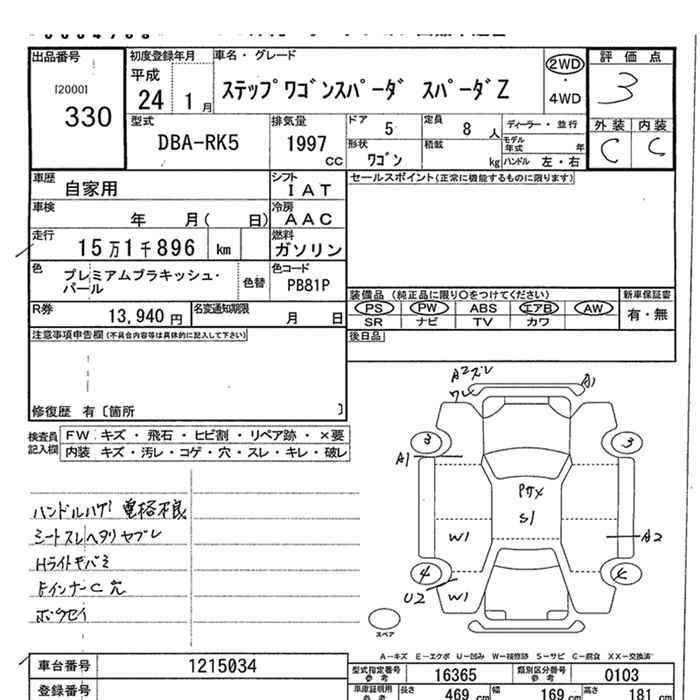 出品番号
[2000]
330
初度登録年月
平成
24 1 月
車名・グレード
ステップワゴンスパーダ スパーダZ
2WD
・
4WD
評価点
3
外装 内装
C C
型式
DBA-RK5
排気量
1997
CC
ドア 5
定員 8 人
ディーラー・並行
形状 ワゴン
積載 kg
モデル年式 年
ハンドル 左・右
車歴 自家用
シフト IAT
セールスポイント(正常に機能するものに限ります)
車検 年 月( 日)
冷房 AAC
走行 15万1千896 km
燃料 ガソリン
色 プレミアムブラキッシュ・パール
色替
色コード PB81P
R券 13,940 円
名変通知期限 月 日
装備品 (純正品に限り○をつけてください)
新車保証書
PS PW ABS エアB AW
有・無
SR ナビ TV カワ
注意事項申告欄(不具合内容等は具体的に記入して下さい)
後日品
修復歴 有〔箇所 〕
検査員記入欄
FW キズ・飛石・ヒビ割・リペア跡・×要
内装 キズ・汚レ・コゲ・穴・スレ・キレ・破レ
ハンドルハゲ 電格不良
シートスレヘタリヤブレ
Hライトキバミ
FインナーC穴
ボウセイ
A2ズレ
ワレ
A1
3
3
A1
Pサメ
S1
W1
A2
4
4
U2
W1
スペア
A-キズ E-エクボ U-凹み W-補修跡 S-サビ C-腐食 XX-交換済
車台番号 1215034
型式指定番号 参考 16365
類別区分番号 参考 0103
登録番号
車庫証明用 参考
長さ 469 cm
幅 169 cm
高さ 181 cm